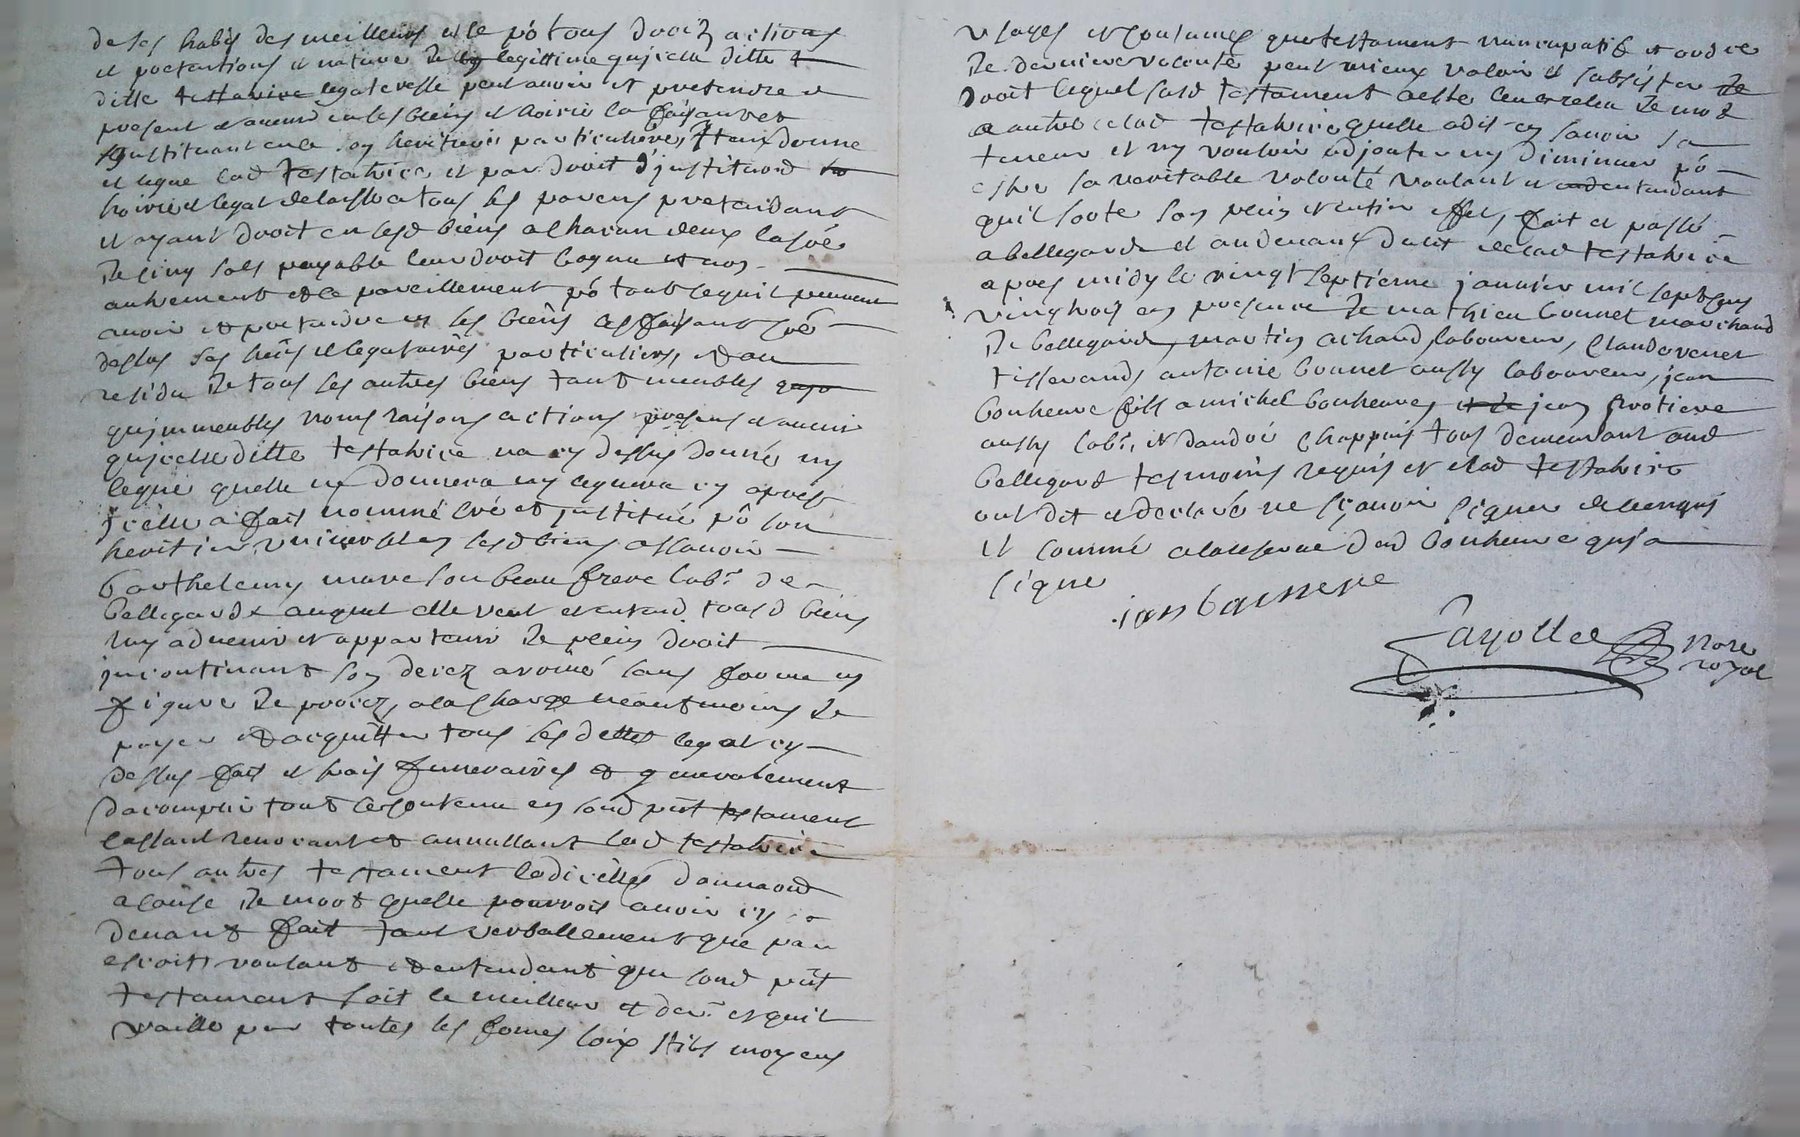 de ses habis des meilleurs et ce po tous droiz actions
et pretentions et nature de legittime qu'icelle ditte
ditte testatrice legateresse peut avoir et pretendre a
present et avenir en ses biens et hoirie la faisant et
instituant en ce son heritiere particuliere, Item donne
et legue lad testatrice et par droit d'institu͞on
hoirie et legat delaisse a tous ses parens pretendant
et ayant droit en sesd biens a chacun deux la so͞e
de cinq sols payable leur droit cognu et non
autrement et ce pareillement po tout ce qu'il peuvent
avoir et pretendre en ses biens les faisant
dessus ses heirs et legataires particuliers, et au
residu de tous ses autres biens tant meubles
qu'immeubles noms raisons actions presens et avenir
qu'icelle ditte testatrice na cy dessus donné ny
legué quelle ne donnera ny leguera cy apres
Icelle a fait nommé créé et institué po son
heritier universel en sesd biens assavoir
barthelemy mave son beau frere labr de
bellegarde auquel elle veut et entend tousd biens
luy advenir et appartenir de plein droit
incontinant son decez arrivé sans forme ny
figure de procez, a la charge neantmoins de
payer et acquitter tous ses dettes legat cy
dessus fait et frais funeraires et generalement
d'acomplir tout le contenu en sond pn̄t testament
cassant revocant et annullant lad testatrice
tous autres testament codicilles donna͞on
a cause de mort quelle pourroit avoir cy
devant fait tant verballement que par
escrit, voulant et entendant que sond pn̄t
testament soit le meilleur et der. et quil
vaille par toutes les formes loix stils moyens
usages et coutumes que testament nuncupatif et ordre
de derniere volonté peut mieux valoir et subsister de
droit lequel susd testament a esté leu et releu de mot
a autre a lad testatrice quelle a dit en savoir sa
teneur et ny vouloir adjouter ny diminuer po
estre sa veritable volonté voulant et entendant
quil sorte son plein et entier effet, fait et passé
a bellegarde et au devant de lad testatrice
apres midy le vingt septieme janvier mil sept cens
vingt trois en presence de mathieu bonnet marchand
de bellegarde, martin achard, laboureur, Claude
tisserand, antoine bonnet aussy laboureur, jean
bonheure fils a michel bonheure, jean frotiere
aussy labr, et dandré chappuis tous demeurant aud
bellegarde tesmoins requis et lad testatrice
ont dit et declaré ne sçavoir signer de ce enquis
et sommé a la reserve dud bonheure qui a
signe
ian bonnere
Fayolle nore
royal